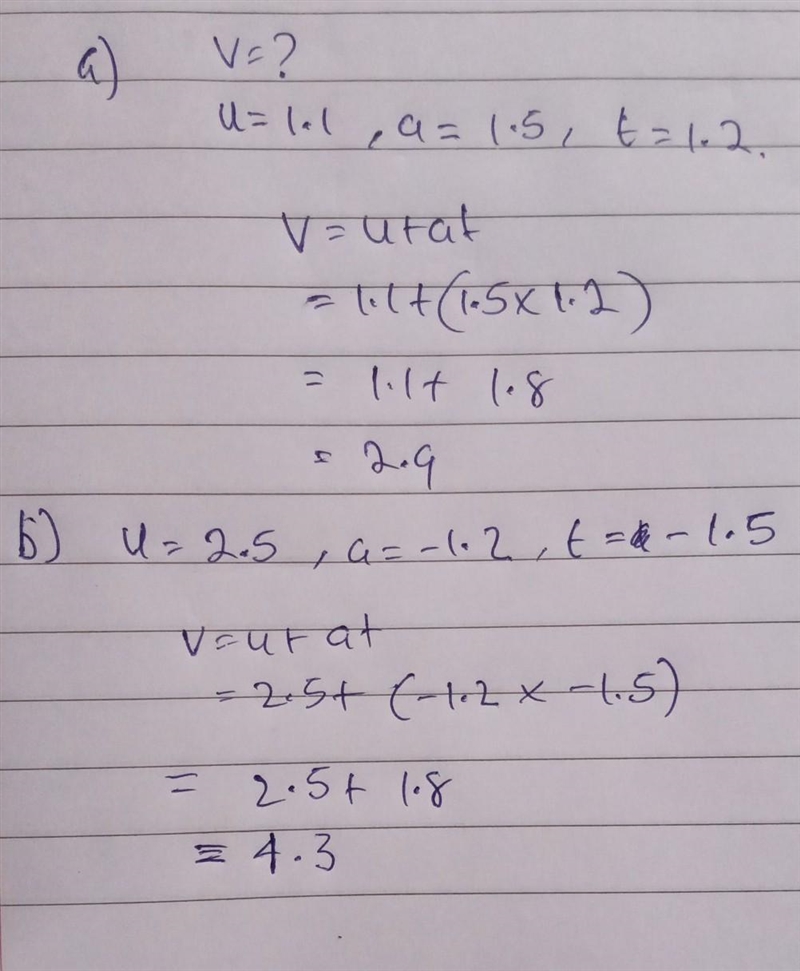 a) V=?
u=1.1 , a= 1.5, t=1.2.
V=u+at
=1.1+(1.5×1.2)
= 1.1+ 1.8
= 2.9
b) u=2.5 , a=-1.2, t= -1.5
V=u+ at
=2.5+ (-1.2× -1.5)
= 2.5+ 1.8
= 4.3